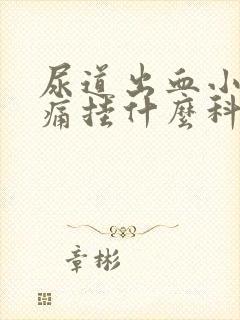 尿道出血小
痛挂什麼科
章彬